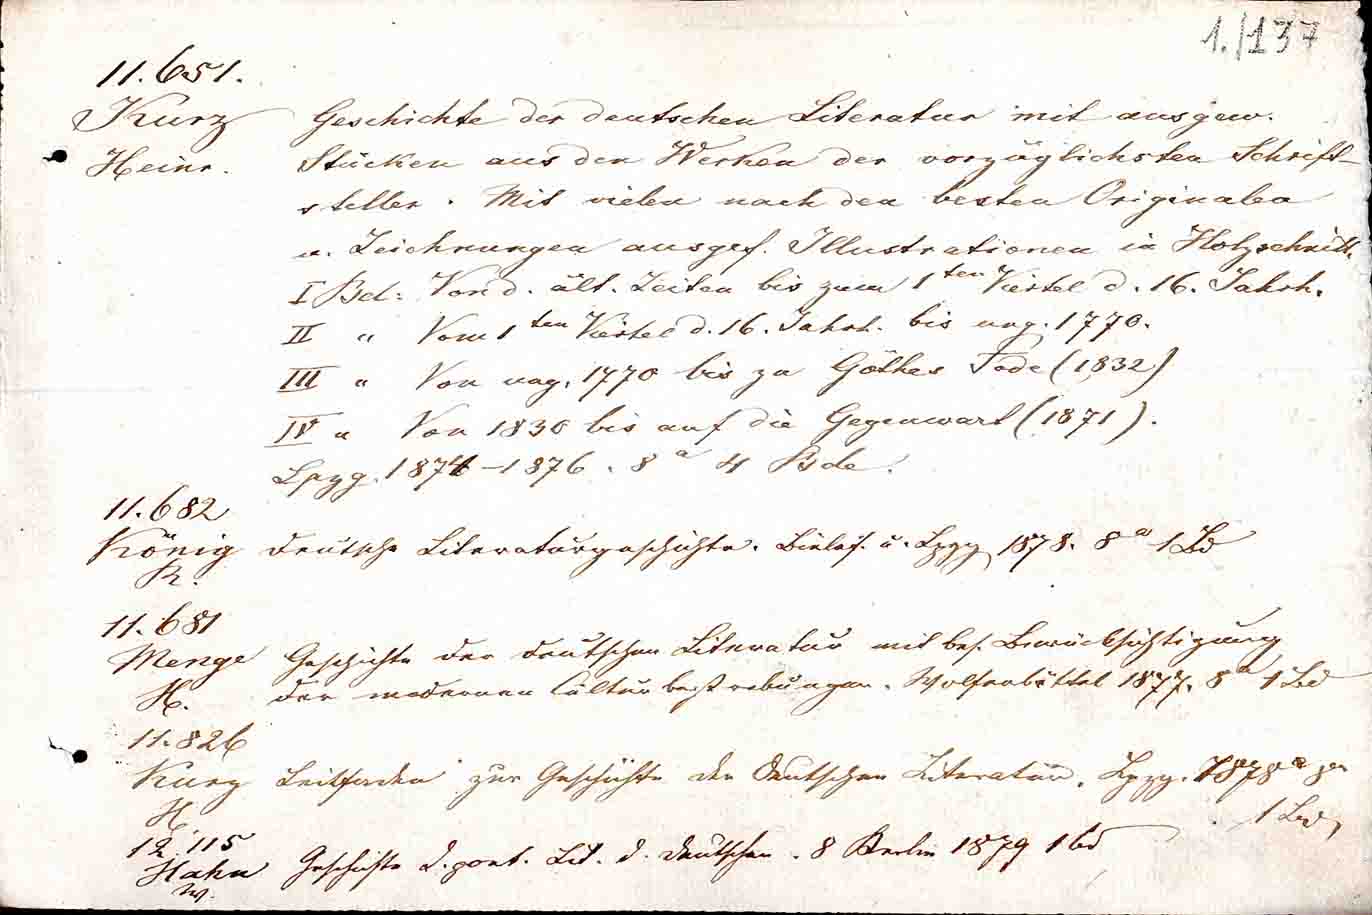 1./137
11.651.
Kurz Geschichte der deutschen Literatur mit ausgew.
Heinr. Stücken aus den Werken der vorzüglichsten Schrift-
steller. Mit vielen nach den besten Originalen
u. Zeichnungen ausgef. Illustrationen in Holzschnitt.
I Bd: Von d. ält. Zeiten bis zum 1ten Viertel d. 16. Jahrh.
II " Vom 1ten Viertel d. 16. Jahrh. bis ung. 1770.
III " Von ung. 1770 bis zu Göthes Tode (1832)
IV " Von 1830 bis auf die Gegenwart (1871).
Lpzg. 1874-1876. 8° 4 Bde.
11.682
König Deutsche Literaturgeschichte. Bielef. u. Lpzg 1878. 8° 1 Bd
R.
11.681
Menge Geschichte der deutschen Literatur mit bes. Berücksichtigung
H. der modernen Culturbestrebungen. Wolfenbüttel 1877. 8° 1 Bd
11.826
Kurz Leitfaden zur Geschichte der deutschen Literatur. Lpzg. 1878 8°
H. 1 Bd
12.115
Hahn Geschichte d. poet. Lit. d. Deutschen. 8 Berlin 1879 1 bd
W.